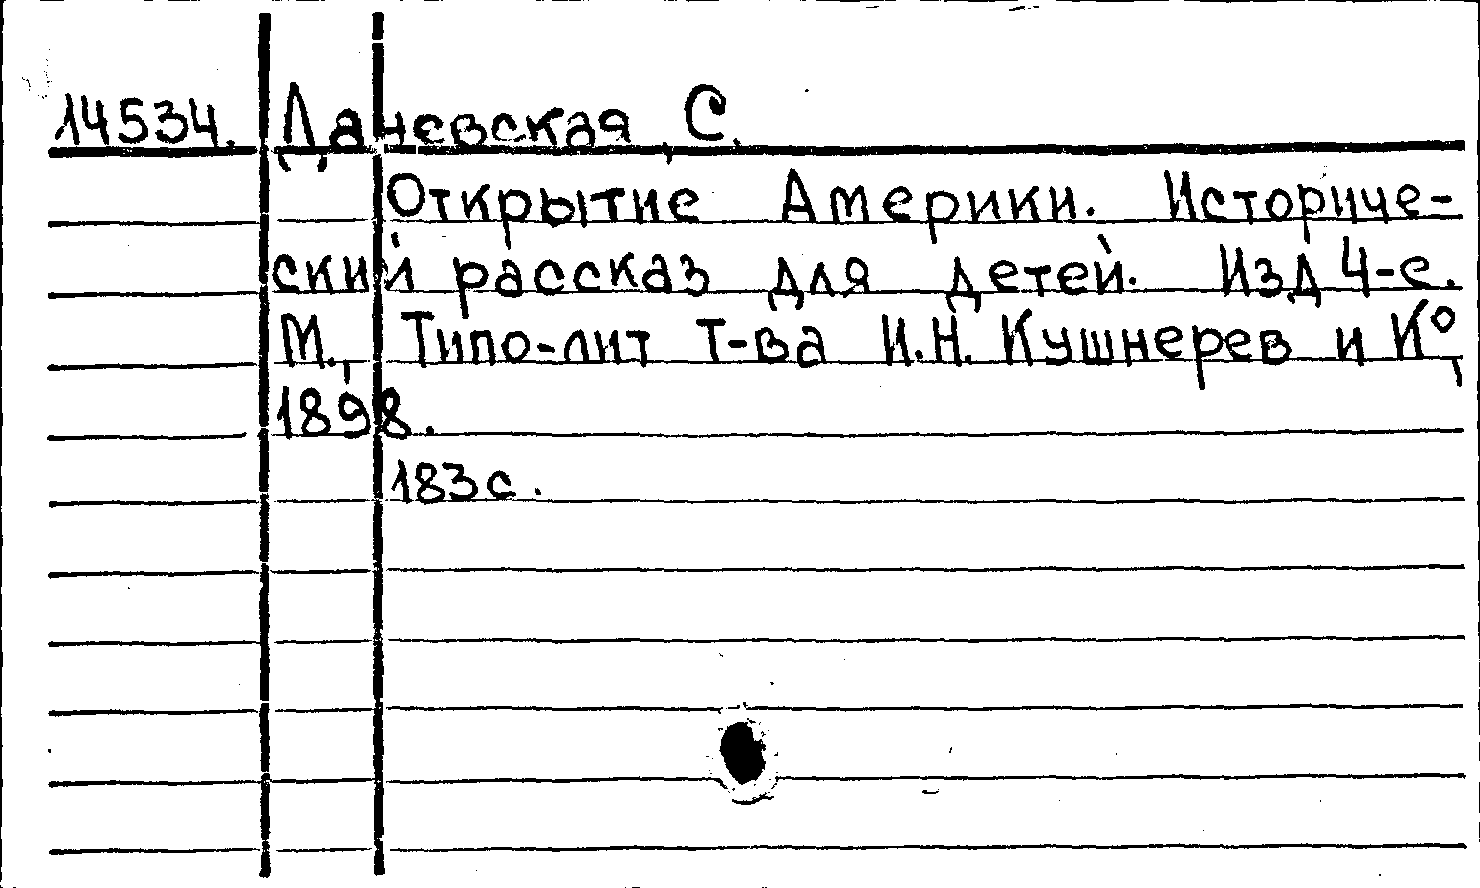 14534. Даневская, С.
Открытие Америки. Историче-
ский рассказ для детей. Изд 4-е.
М., Типо-лит Т-ва И.Н. Кушнерев и К⁰,
1898.
183с.